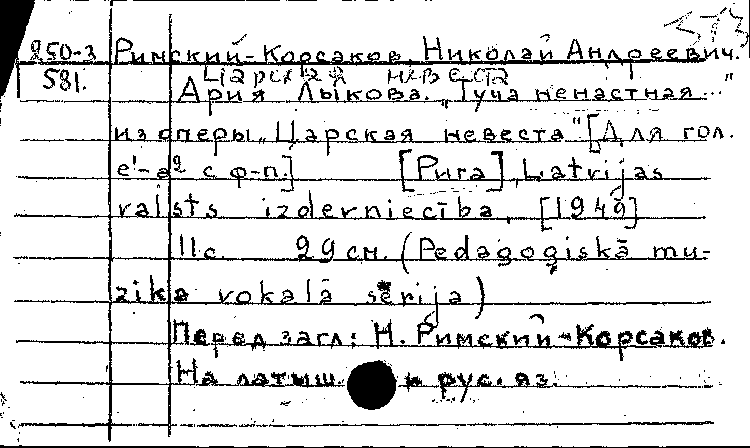 573
250-3 Римский-Корсаков, Николай Андреевич.
581. Царская невеста
Ария Лыкова. „Туча ненастная..."
из оперы „Царская невеста" [Для гол.
e¹-a² с ф-п.] [Рига], Latvijas
valsts izderniecība, [1949]
11 с. 29 см. (Pedagoģiskā mu-
zika vokalā sērija)
Перед загл: Н. Римский-Корсаков.
На латыш. и рус. яз.